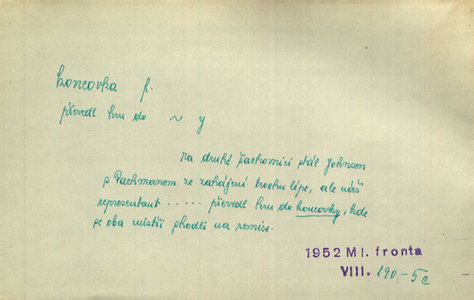 koncovka f.
převedl hru do ~ y
na druhé šachovnici stál Johnson
s Pachmanem ze zahájení trochu lépe, ale náš
representant ..... převedl hru do koncovky, kde
se oba mistři shodli na remise.
1952 Ml. fronta
VIII. 190-5c